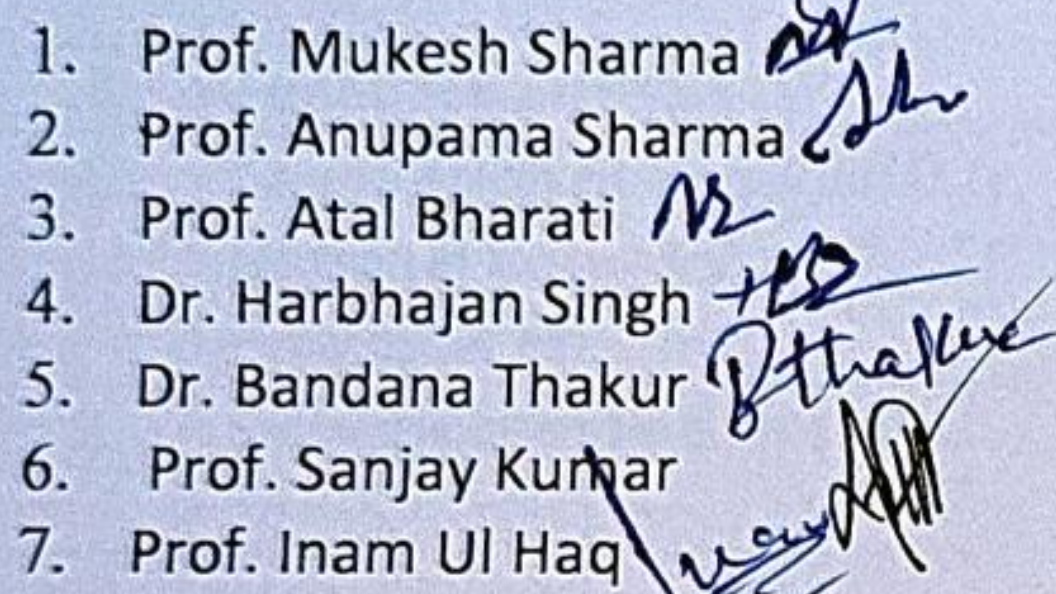 1. Prof. Mukesh Sharma
2. Prof. Anupama Sharma
3. Prof. Atal Bharati
4. Dr. Harbhajan Singh
5. Dr. Bandana Thakur BThakur
6. Prof. Sanjay Kumar
7. Prof. Inam Ul Haq